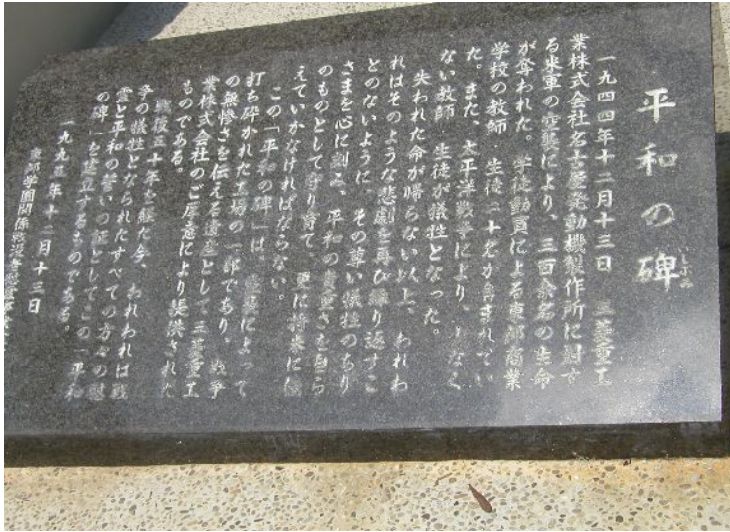 平和の碑
いしぶみ
一九四四年十二月十三日 三菱重工
業株式会社名古屋発動機製作所に対す
る米軍の空襲により、三百余名の生命
が奪われた。学徒動員による東邦商業
学校の教師 生徒二十名が含まれてい
た。また、太平洋戦争により、少なく
ない教師 生徒が犠牲となった。
失われた命が帰らない以上、われわ
れはそのような悲劇を再び繰り返すこ
とのないように、その尊い犠牲のあり
さまを心に刻み、平和の貴重さを自ら
のものとして守り育て 更に将来に伝
えていかなければならない。
この「平和の碑」は、空襲によって
打ち砕かれた工場の一部であり、戦争
の無惨さを伝える遺産として三菱重工
業株式会社のご厚意により提供された
ものである。
戦後五十年を経た今、われわれは戦
争の犠牲となられたすべての方々の慰
霊と平和の誓いの証としてこの「平和
の碑」を建立するものである。
一九九五年十二月十三日
東邦学園関係戦没者